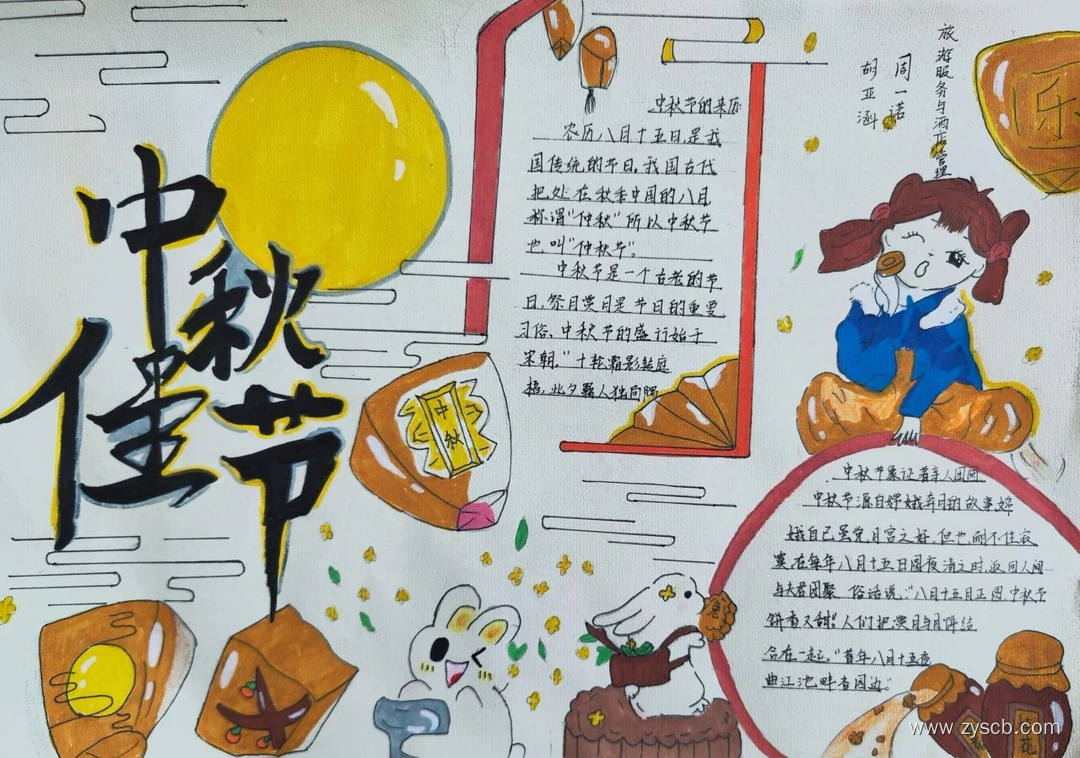 中秋佳节
中秋节的来历
农历八月十五日，是我
国传统的节日。我国古代
把处在秋季中国的八月
称谓"仲秋"所以中秋节
也叫"仲秋节"。
中秋节是一个古老的节
日，祭月赏月是节日的重要
习俗。中秋节的盛行始于
宋朝。"十轮霜影转庭
梧，此夕羁人独向隅
旅游服务与酒店管理
周一诺
胡亚涵
乐
中秋
中秋节象证着亲人团圆
中秋节源自嫦娥奔月的故事嫦
娥自己虽觉月宫之好，但也耐不住寂
寞，在每年八月十五日园夜清之时，返回人间
与夫君团聚 俗话说："八月十五月正圆，中秋节
饼香又甜"人们把赏月与月饼结
合在一起。"昔年八月十五夜
曲江池畔杏园边"
花
www.zyscb.com